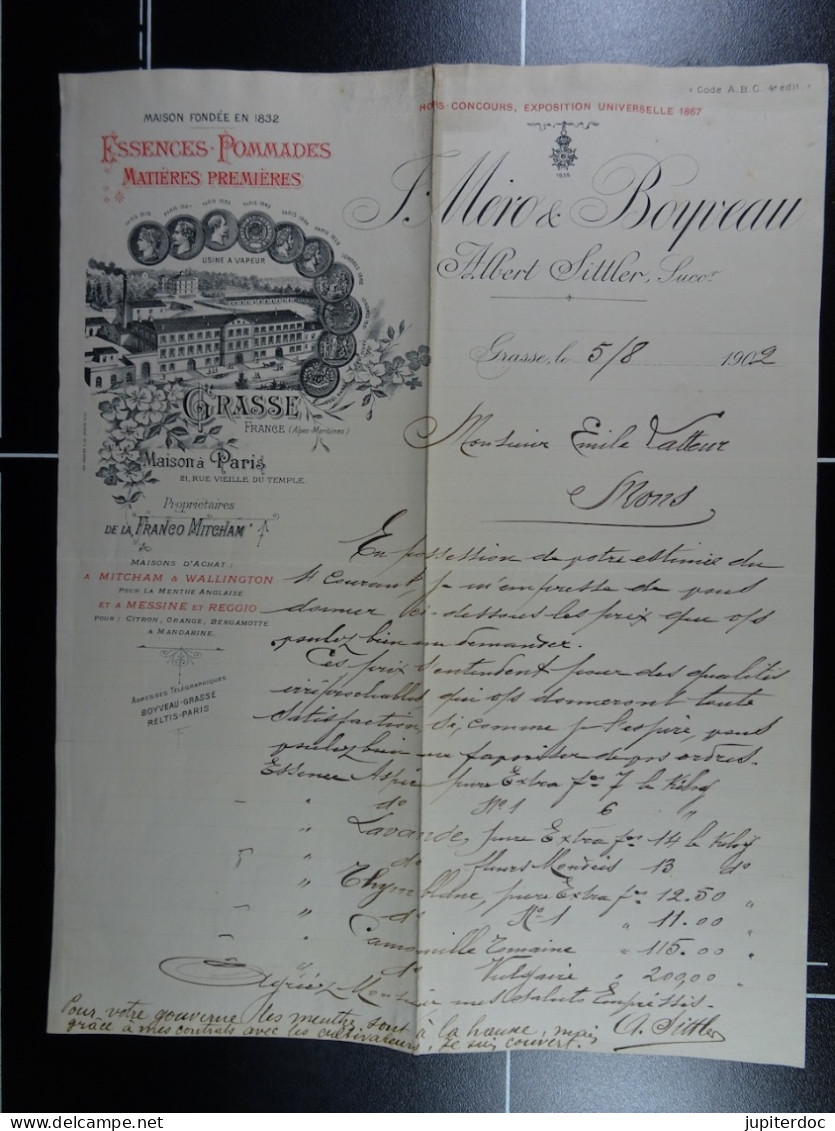 « Code A.B.C. 4e edit. »
HORS-CONCOURS, EXPOSITION UNIVERSELLE 1867
MAISON FONDÉE EN 1832
ESSENCES-POMMADES
MATIÈRES PREMIÈRES
USINE A VAPEUR
J. Méro & Boyveau
Albert Sittler, Succr
GRASSE
FRANCE (Alpes-Maritimes)
Maison à Paris
21, RUE VIEILLE DU TEMPLE.
Propriétaires
DE LA "FRANCO MITCHAM"
MAISONS D'ACHAT :
A MITCHAM & WALLINGTON
POUR LA MENTHE ANGLAISE
ET A MESSINE ET REGGIO
POUR : CITRON, ORANGE, BERGAMOTTE
& MANDARINE.
ADRESSES TÉLÉGRAPHIQUES
BOYVEAU-GRASSE
RELTIS-PARIS
Grasse, le 5/8 1902
Monsieur Emile
Mons
En possession de votre estimée du
Courant, je m'empresse de vous
donner ci-dessous les prix que vs
voulez bien me demander.
Ces prix s'entendent pour des qualités
irréprochables qui vs donneront toute
satisfaction, si, comme je l'espère, vous
voulez bien me favoriser de vos ordres.
Essence Aspic pure Extra frs 7 le Kilog
" do No 1 6 "
" Lavande, pure Extra frs 14 le Kilog
" do fleurs 13 do
" Thym blanc, pure Extra fr. 12.50 "
" do No 1 " 11.00 "
" Camomille Romaine " 115.00 "
" do Vulgaire " 200,00 "
Agréez Monsieur mes saluts Empressés.
A. Sittler
Pour votre gouverne les menthes sont à la hausse, mais
grâce à mes contrats avec les cultivateurs, je suis couvert.
jupiterdoc
www.delcampe.net